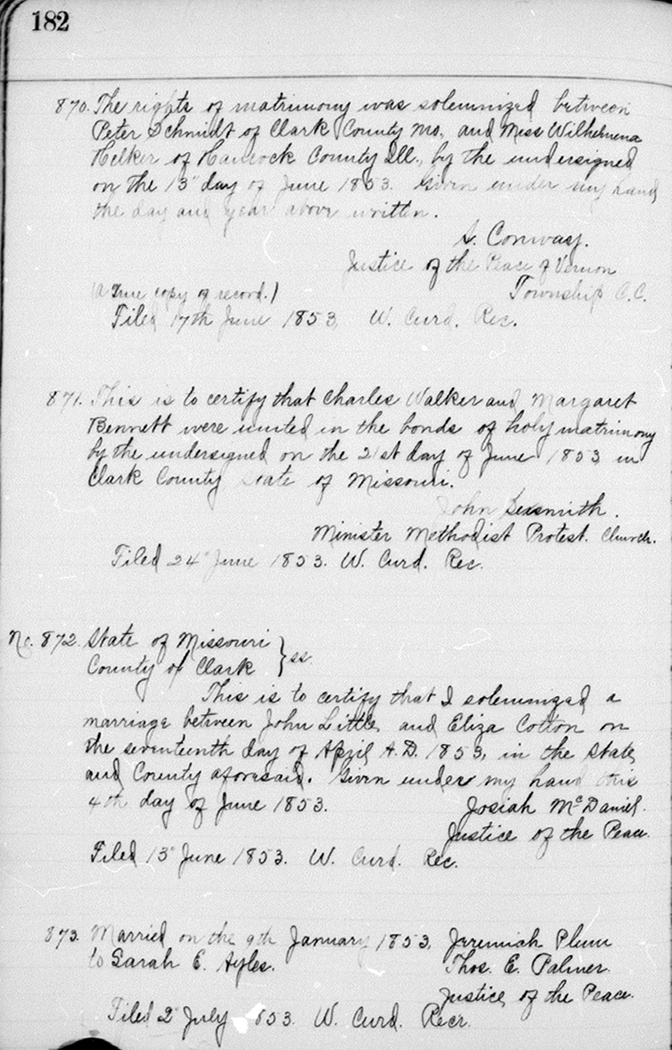 182
870. The rights of matrimony was solemnized between
Peter Schmidt of Clark County Mo. and Miss Wilhemena
Hilker of Hancock County Ill., by the undersigned
on the 13" day of June 1853. Given under my hand
the day and year above written.
S. Conway.
Justice of the Peace of Vernon
Township C.C.
(A True copy of record.)
Filed 17th June 1853, W. Curd. Rec.
871. This is to certify that Charles Walker and Margaret
Bennett were united in the bonds of holy matrimony
by the undersigned on the 21st day of June 1853 in
Clark County State of Missouri.
John Sexsmith.
Minister Methodist Protest. Church.
Filed 24" June 1853. W. Curd. Rec.
No. 872. State of Missouri
County of Clark } ss.
This is to certify that I solemnized a
marriage between John Little, and Eliza Cotton on
the seventeenth day of April A.D. 1853, in the State,
and County aforesaid. Given under my hand this
4th day of June 1853. Josiah McDaniel.
Justice of the Peace.
Filed 13" June 1853. W. Curd. Rec.
873. Married on the 9th January 1853, Jeremiah Plum
to Sarah E. Ayles. Thos. E. Palmer.
Justice of the Peace.
Filed 2" July 1853. W. Curd. Recr.